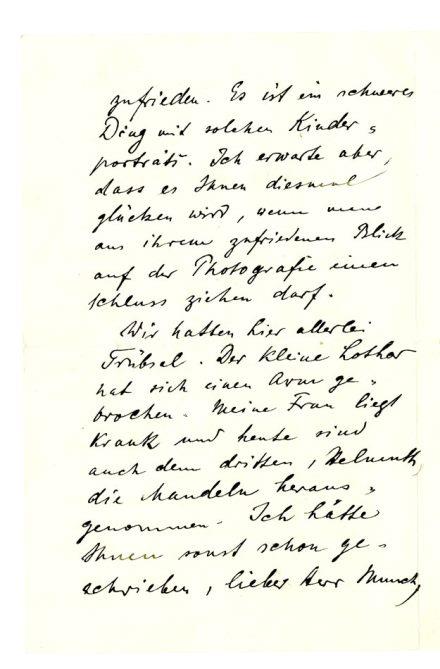 zufrieden. Es ist ein schweres
Ding mit solchen Kinder-
porträts. Ich erwarte aber,
dass es Ihnen diesmal
glücken wird, wenn man
aus ihrem zufriedenen Blick
auf der Photografie einen
Schluss ziehen darf.
Wir hatten hier allerlei
Trübsel. Der kleine Lothar
hat sich einen Arm ge-
brochen. Meine Frau liegt
krank und heute sind
auch dem dritten, Helmuth,
die Mandeln heraus-
genommen. Ich hätte
Ihnen sonst schon ge-
schrieben, lieber Herr Munch,